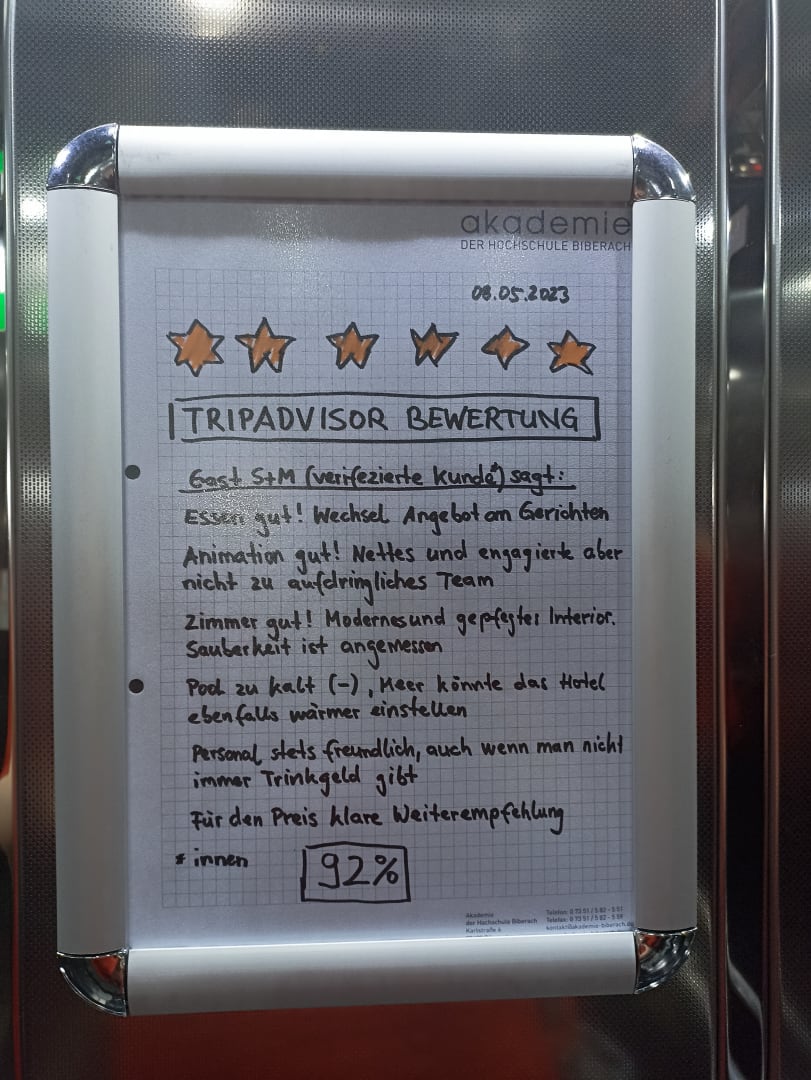 akademie
DER HOCHSCHULE BIBERACH
08.05.2023
TRIPADVISOR BEWERTUNG
Gast S+M (verifezierte Kunde*) sagt:
Essen gut! Wechsel Angebot an Gerichten
Animation gut! Nettes und engagierte aber
nicht zu aufdringliches Team
Zimmer gut! Modernes und gepflegtes Interior.
Sauberkeit ist angemessen
Pool zu kalt (-), Meer könnte das Hotel
ebenfalls wärmer einstellen
Personal stets freundlich, auch wenn man nicht
immer Trinkgeld gibt
Für den Preis klare Weiterempfehlung
* innen
92%
Akademie
der Hochschule Biberach
Karlstraße 6
Telefon: 0 73 51 / 5 82 - 5 51
Telefax: 0 73 51 / 5 82 - 5 59
kontakt@akademie-biberach.de